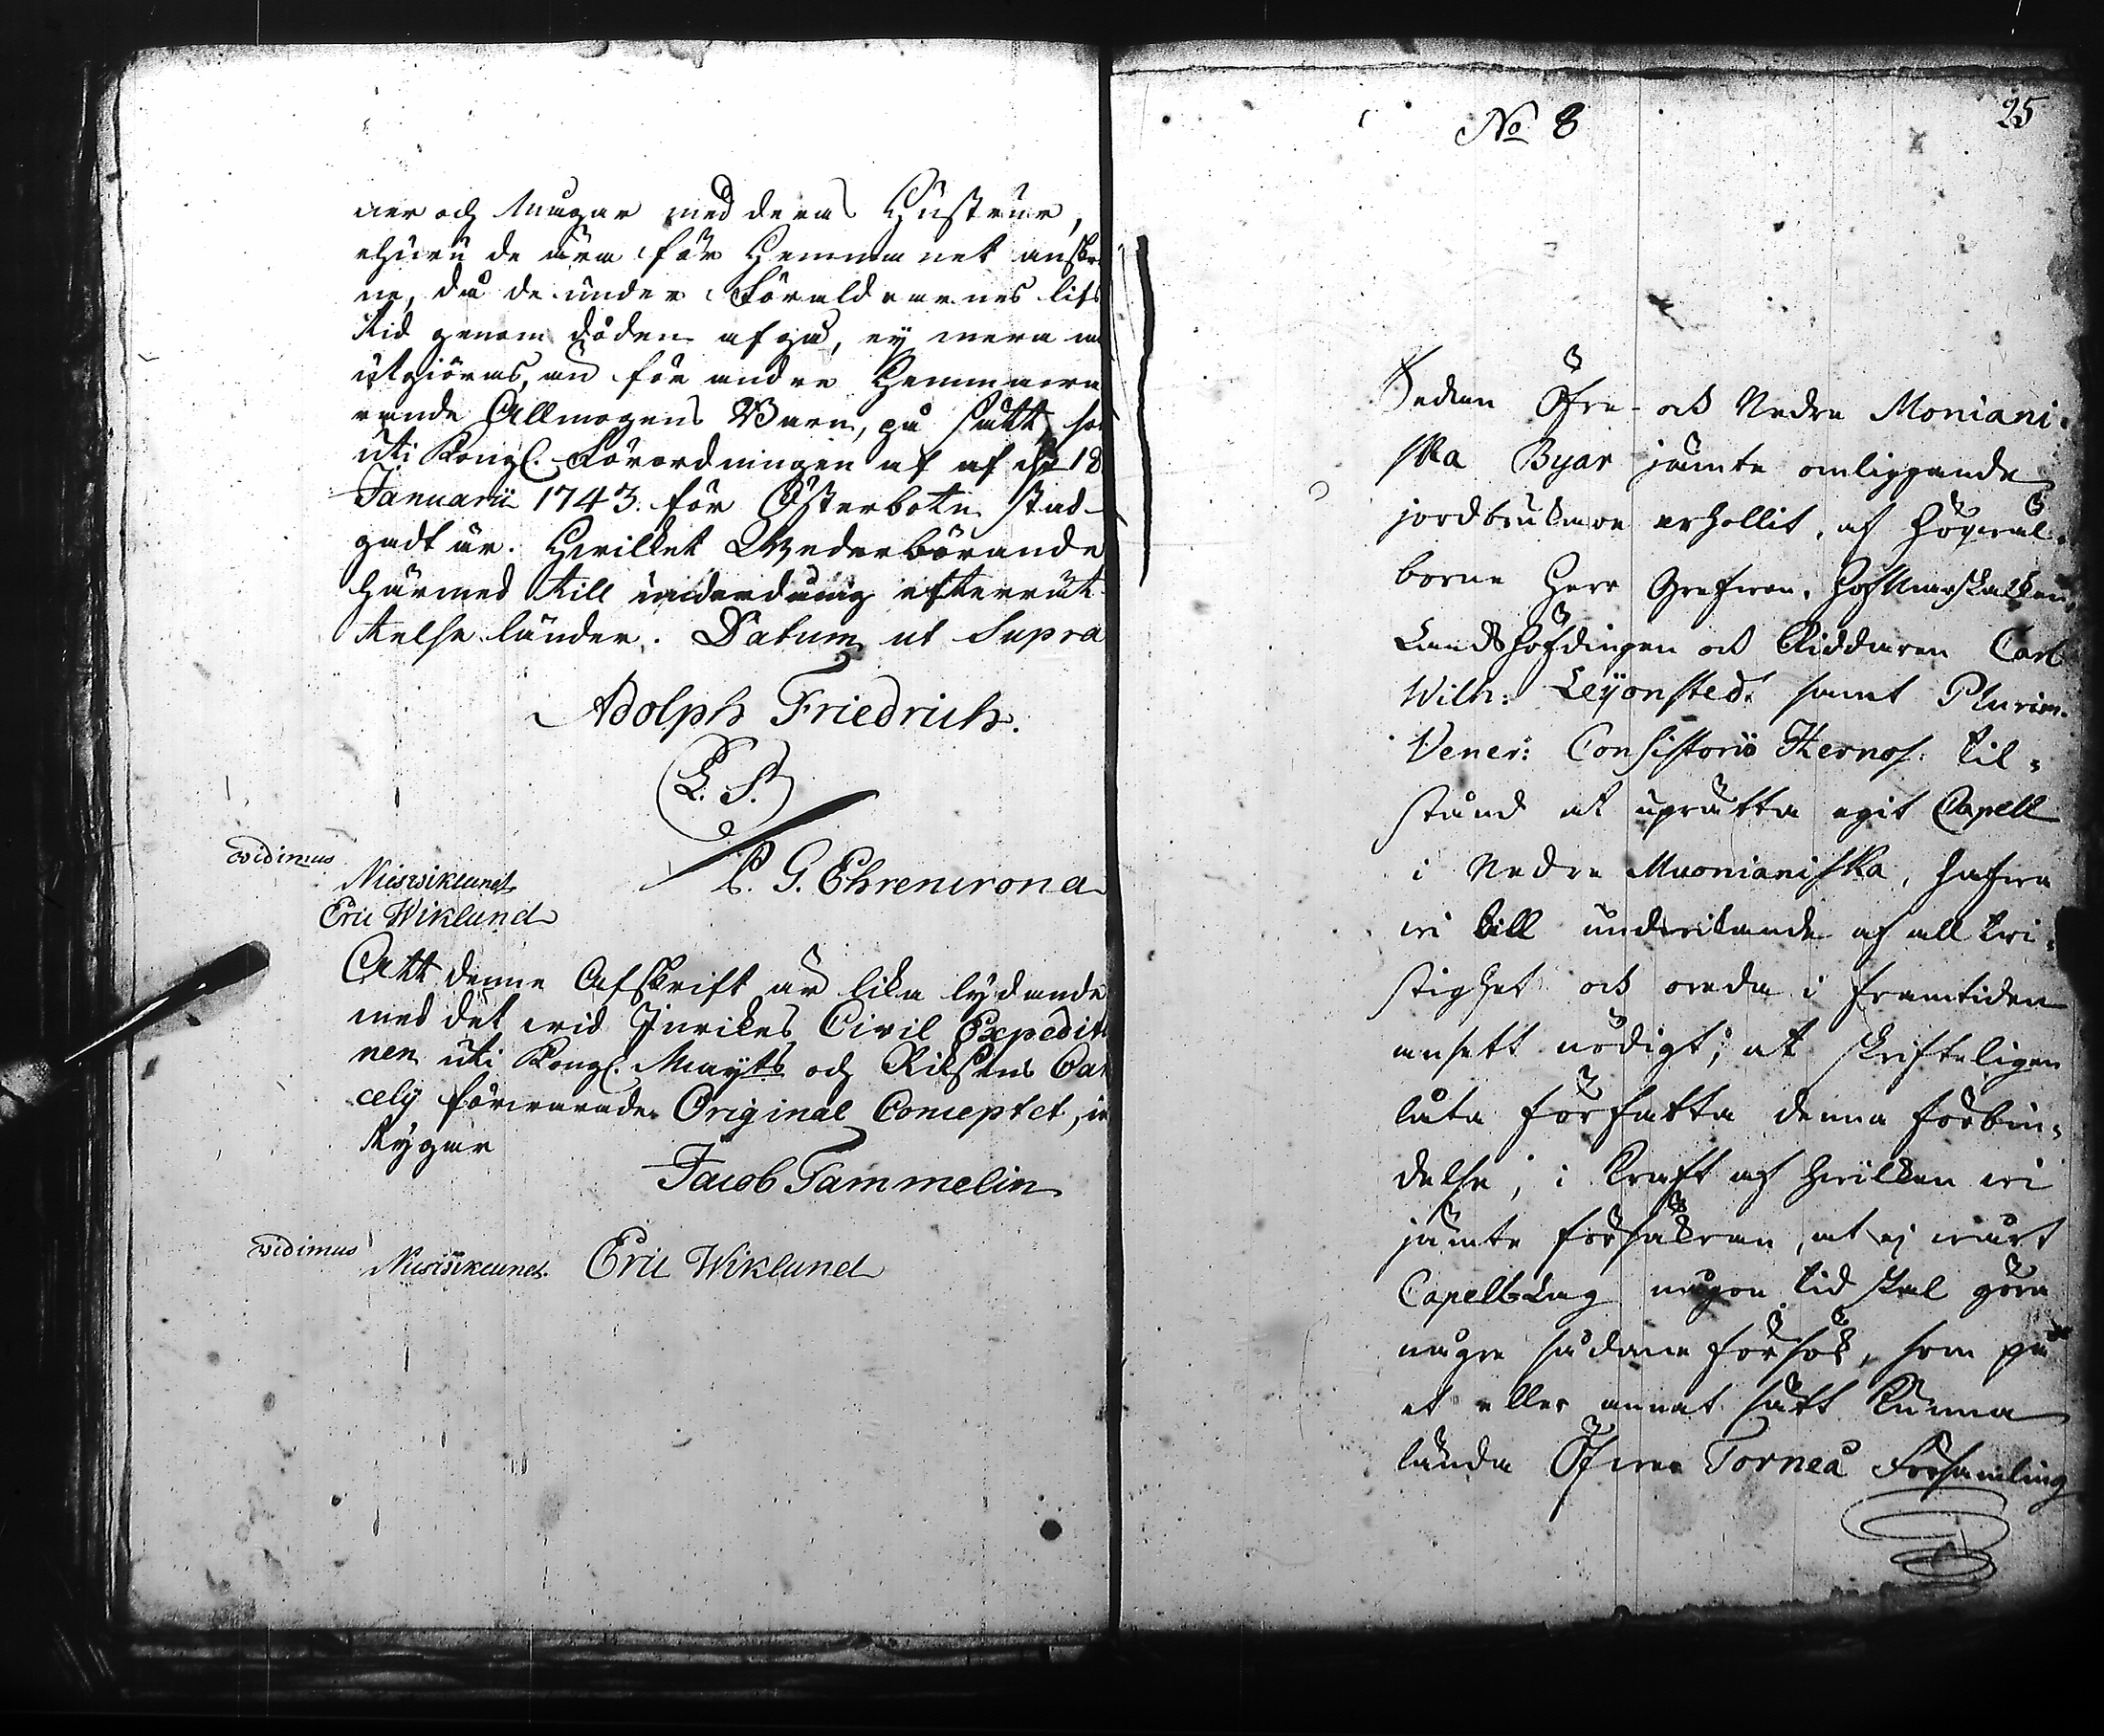 ner och Mågar med deras Hustrur,
ehuru de äro för Hemmanet anskr
ne, då de under Föräldrarnes lifs
tid genom döden afgå, ey mera må
utgiöras, än för andre Hemmava
rande Allmogens Barn, på sätt, so
uti Kongl. Förordningen af af d 18
Januarii 1743. för Österbotn stad-
gadt är. Hvilket Wederbörande
härmed till underdånig efterrät
telse länder. Datum ut Supra
Adolph Friedrich.
L. S.
C. G. Ehrencrona
vidimus
Nils Wiklund
Eric Wiklund
Att denne Afskrift är lika lydande
med det wid Inrikes Civil Expeditio
nen uti Kongl. Mayts och Riksens Can
cely förwarade Original Conceptet, in
tygar
Jacob Tammelin
vidimus
Nils Wiklund. Eric Wiklund
25
No 8
Sedan Öfre- och Nedre Moniani-
ska Byar jämte omliggande
jordbrukare erhollit, af högväl-
borne Herr Grefwen, HofMarskalken,
Landshöfdingen och Riddaren Carl
Wilh: Leÿonstedt samt Plurim.
Vener: Consistorio Hernos. til=
stånd at uprätta egit Capell
i Nedre Muonianiska, hafwa
wi till undwikande af all twi=
stighet och oreda i framtiden
ansett nödigt; at skrifteligen
låta författa denna förbin=
delse, i kraft af hwilken wi
jämte försäkran, at ej wårt
CapellLag någon tid skal göra
någre sådane försök, som på
et eller annat sätt kunna
lända Öfwer Torneå Församling